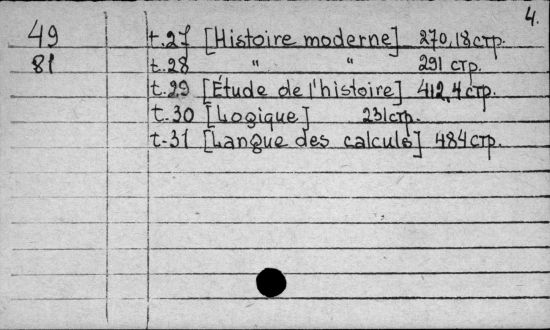 4.
49 t.27 [Histoire moderne] 270,18 стр.
81 t.28 " " 291 стр.
t.29 [Étude de l'histoire] 412,4 стр.
t.30 [Logique] 231 стр.
t.31 [Langue des calculs] 484 стр.